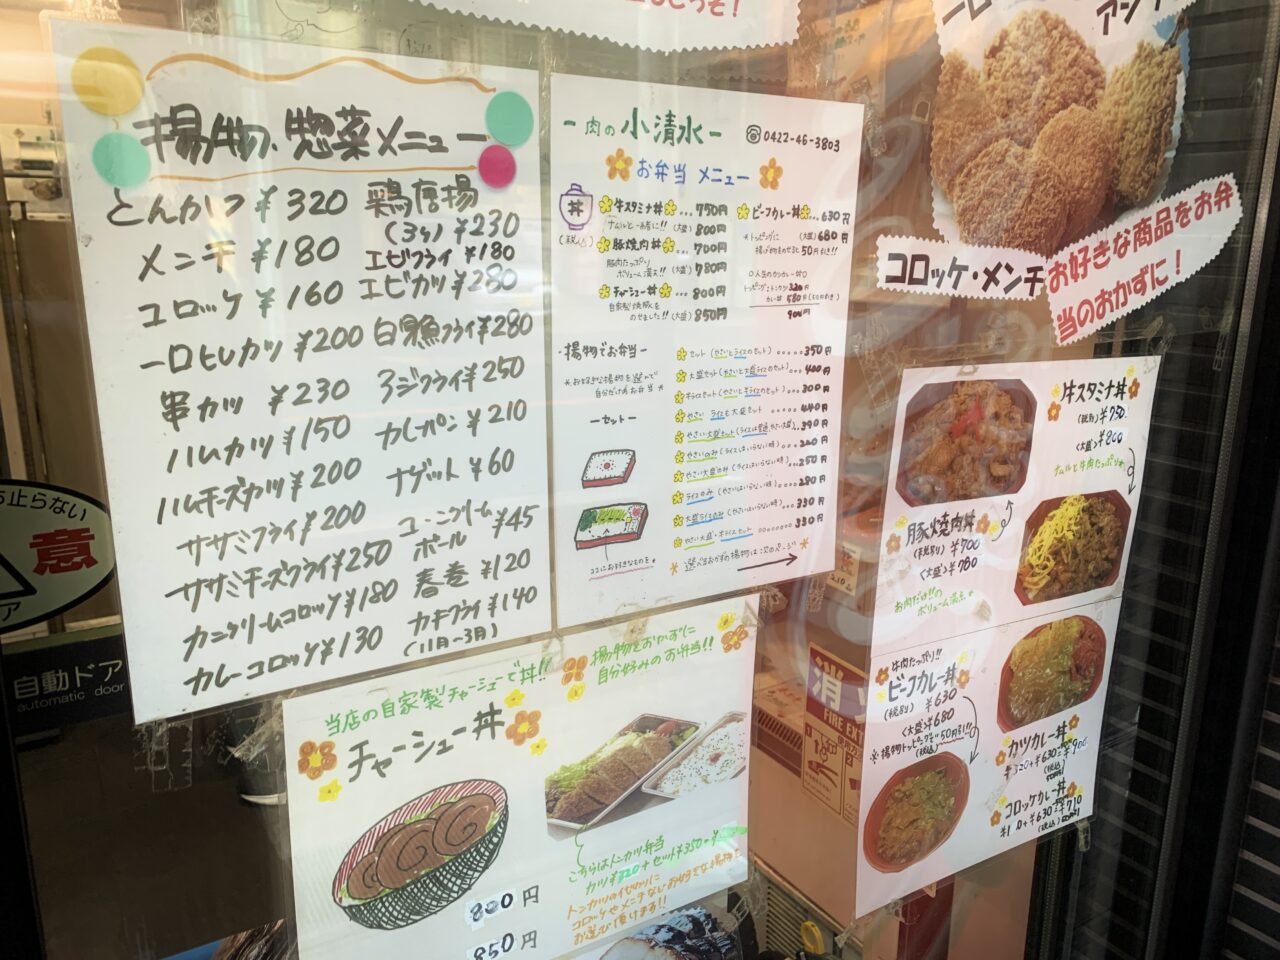 揚物、惣菜メニュー
とんかつ ¥320
メンチ ¥180
コロッケ ¥160
一口ヒレカツ ¥200
串カツ ¥230
ハムカツ ¥150
ハムチーズカツ ¥200
ササミフライ ¥200
ササミチーズフライ ¥250
カニクリームコロッケ ¥180
カレーコロッケ ¥130
鶏唐揚
(3ヶ) ¥230
エビフライ ¥180
エビカツ ¥280
白身魚フライ ¥280
アジフライ ¥250
カレーパン ¥210
ナゲット ¥60
コーンクリーム
ボール ¥45
春巻 ¥120
カキフライ ¥140
(11月〜3月)
-肉の 小清水-
☎0422-46-3803
お弁当 メニュー
丼
(税込)
牛スタミナ丼...750円
ナムルと一緒に!! (大盛) 800円
豚焼肉丼...700円
豚肉たっぷり
ボリューム満点!! (大盛) 780円
チャーシュー丼...800円
自家製焼豚を
のせました!! (大盛) 850円
ビーフカレー丼...630円
(大盛) 680円
-揚物でお弁当-
-セット-
セット(やさいとライスのセット).....350円
大盛セット(やさいと大盛ライスのセット)...400円
半ライスセット(やさいと半ライスのセット)...300円
やさい大盛セット(ライスは普通やさい大盛)...390円
やさいのみ(ライスはいらない時)
やさい大盛のみ(ライスはいらない時)...250円
ライスのみ(やさいはいらない時)...280円
大盛ライスのみ(やさいはいらない時)...330円
やさい大盛・半ライスセット
選べるおかずの揚物は次のページ
当店の自家製チャーシューで丼!!
チャーシュー丼
800円
850円
揚物をおかずに
自分好みのお弁当!!
こちらはトンカツ弁当
トンカツのかわりに
コロッケやメンチなどお好きな揚物を
お選び頂けます!!
コロッケ・メンチ
お好きな商品をお弁
当のおかずに!
牛スタミナ丼
(税別) ¥750
(大盛) ¥800
ナムルと牛肉たっぷり
豚焼肉丼
(税別) ¥700
(大盛) ¥780
お肉だけ!!の
ボリューム満点
牛肉たっぷり!!
ビーフカレー丼
(税別) ¥630
(大盛) ¥680
※揚物トッピングで50円引!!
(税込)
カツカレー丼
コロッケカレー丼
ち止らない
意
自動ドア
automatic door
消
FIRE EXT